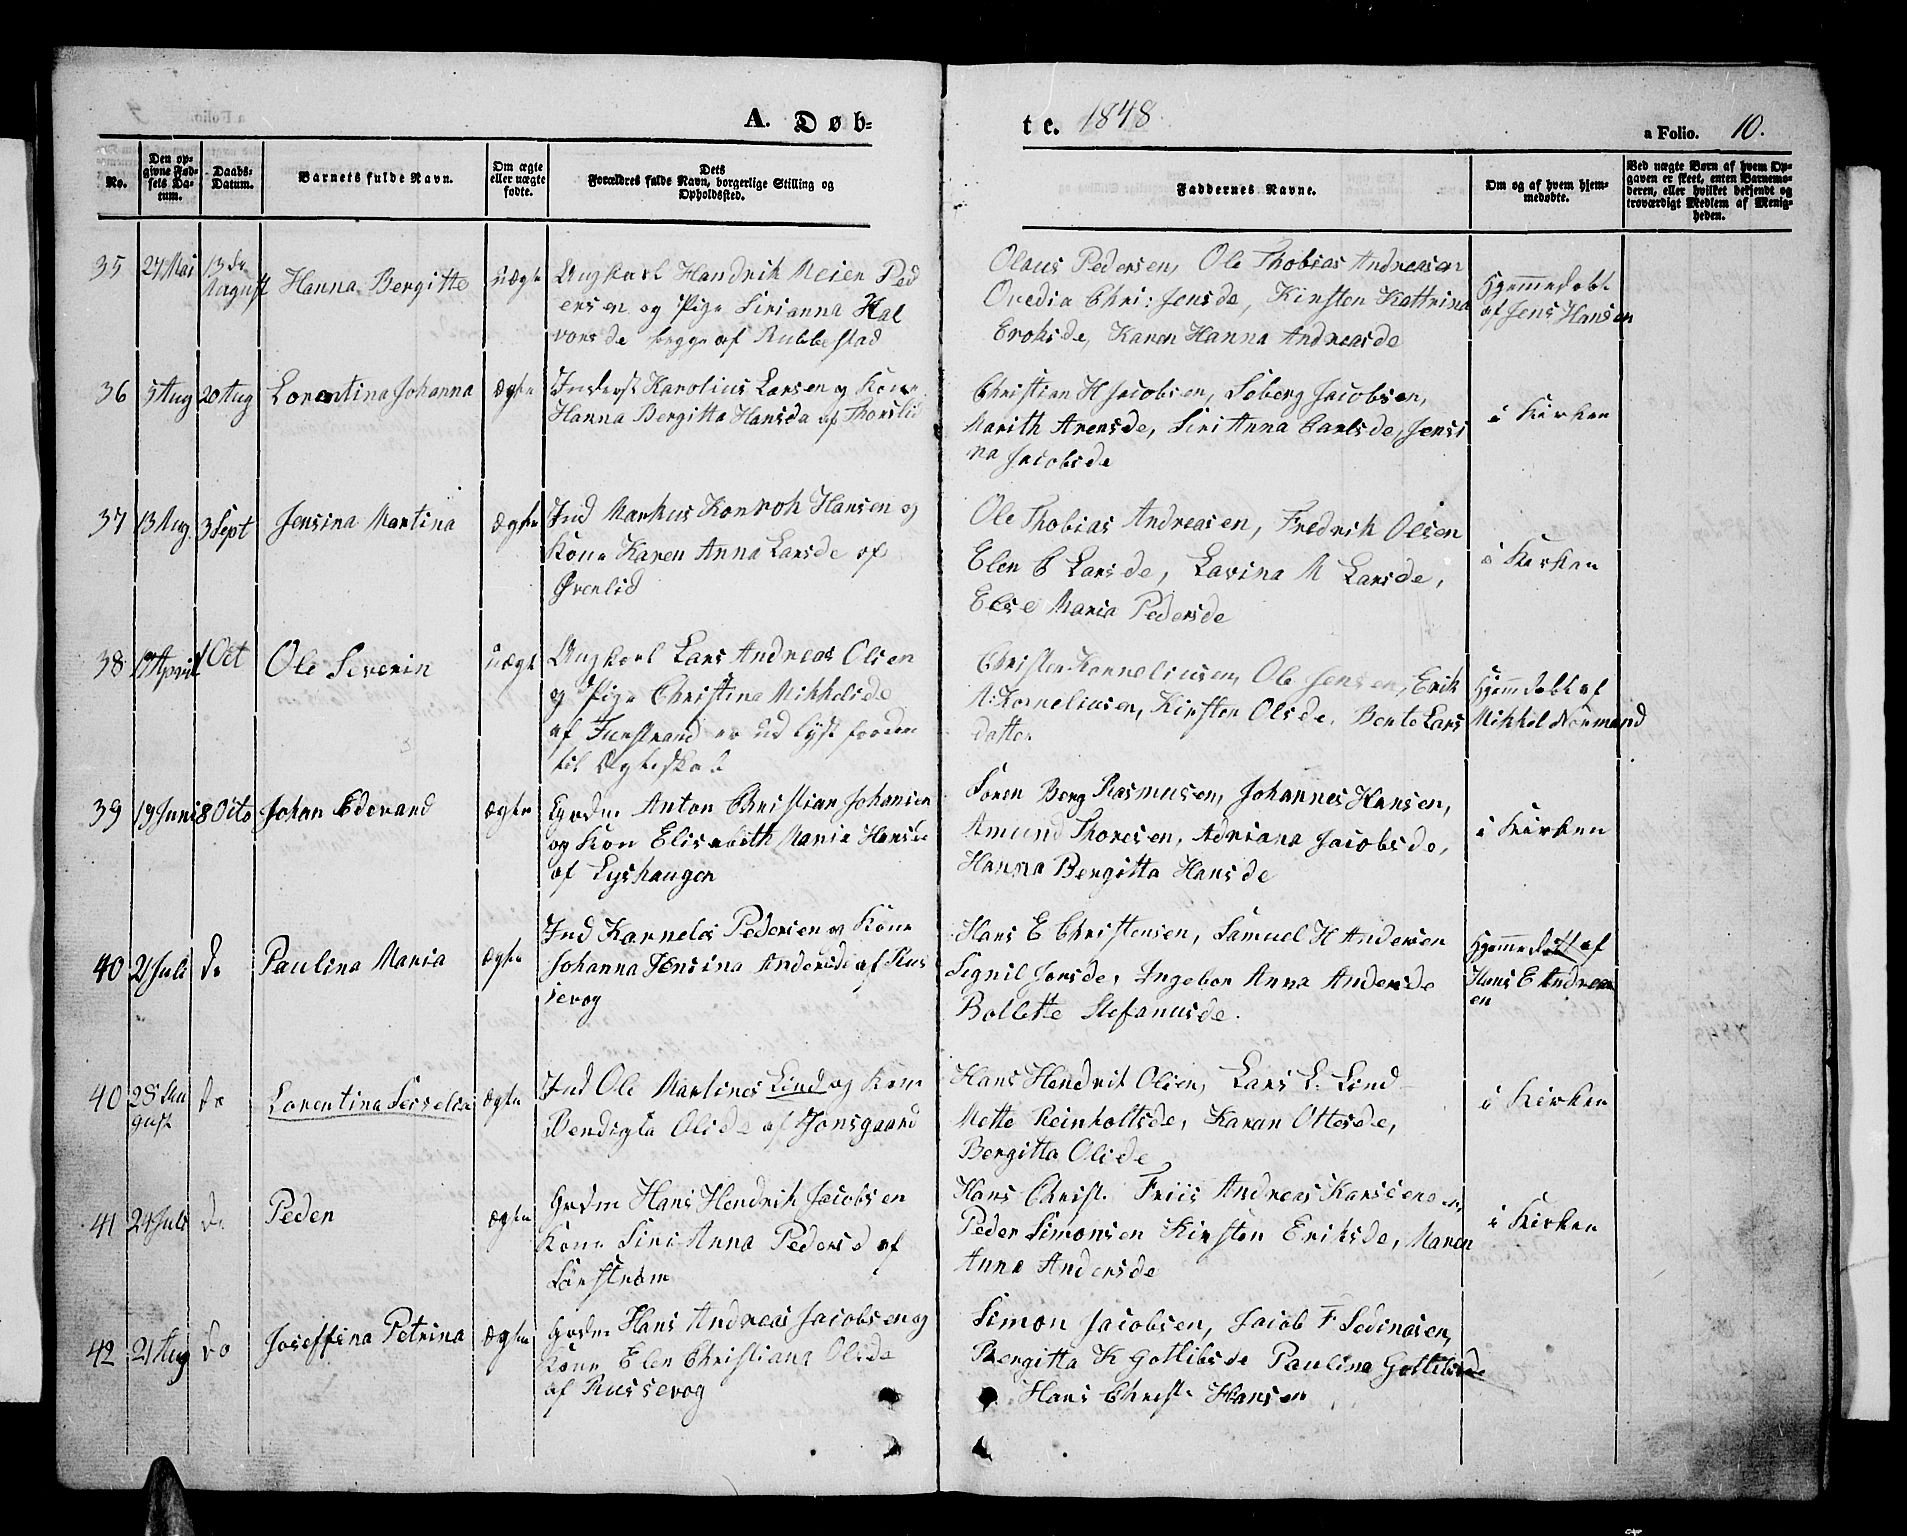 A. Døb-
te. 1848. a Folio. 10.
No.
Den op-
givne Fød-
sels Da-
tum.
Daabs-
Datum.
Barnets fulde Navn.
Om ægte
eller uægte
fødte.
Dets
Forældres fulde Navn, borgerlige Stilling og
Opholdssted.
Faddernes Navne.
Om og af hvem hjem-
medøbte.
Ved uægte Børn af hvem Op-
gaven er skeet, enten Barnemo-
deren, eller hvilket bekjendt og
troværdigt Medlem af Menig-
heden.
35 24 Mai 13de August Hanna Bergitte uægte
Ungkarl Hendrik Meier Ped
ersen og Pige Sirianna Hal
vorsde begge af Rubbestad
Olaus Pedersen, Ole Thobias Andreasen
Ovedia Chri: Jensde, Kirsten Kattrina
Eroksde, Karen Hanna Andreasde
Hjemmedøbt
af Jens Hansen
36 5 Aug 20 Aug Lorentina Johanna ægte
Inderst Karolius Larsen og Kone
Hanna Bergitta Hansda af Thorslid
Christian H Jacobsen, Søberg Jacobsen,
Marith Arensde, Siri Anna Carlsde, Jensi
na Jacobsde
i Kirken
37 13 Aug 3 Sept Jensina Martina ægte
Ind Markus Konroh Hansen og
Kone Karen Anna Larsde af
Øvenlid
Ole Thobias Andreasen, Fredrik Olsen
Elen E Larsde, Lavina M Larsde,
Else Maria Pedersde
i Kirken
38 17 April 1 Oct Ole Severin uægte
Ungkarl Lars Andreas Olsen
og Pige Christina Mikkelsde
af Funstrand er udlyst foroven
til Ægteskab
Christen Korneliusen, Ole Jensen, Erik
A: Korneliusen, Kirsten Olsde, Bente Lars
datter
Hjemmdøbt af
Mikkel Normand
39 19 Juni 8 Octo Johan Edevard ægte
Grdm Anton Christian Johansen
og Kon Elisabeth Maria Hansde
af Lyshaugen
Søren Berg Rasmusen, Johannes Hansen,
Amund Thoresen, Adriana Jacobsde,
Hanna Bergitta Hansde
i Kirken
40 21 Juli do Paulina Maria ægte
Ind Kornelas Pedersen og Kone
Johanna Jensina Andersde af Rus
sevog
Hans E Christensen, Samuel H Andersen
Signil Jonsde, Ingebor Anna Andersde
Bollette Stefanusde.
Hjemmedøbt af
Hans E Andreas
en
40 28 Au
gust do Lorentina Sesselia ægte
Ind Ole Martines Lind og Kone
Bendigta Olsde af Jonsgaard
Hans Hendrik Olsen, Lars L. Lind
Mette Reinholtsde, Karan Ottesde,
Bergitta Olsde
i Kirken
41 24 Juli do Peder ægte
Grdm Hans Hendrik Jacobsen
Kone Siri Anna Pedersd af
Sørstrøm
Hans Christ. Friis Andreas Karseen
Peder Simonsen Kirsten Eriksde, Maren
Anna Andersde
i Kirken
42 21 Aug do Joseffina Petrina ægte
Grdm Hans Andreas Jacobsen og
Kone Elen Christiana Olsde
af Russevog
Simon Jacobsen, Jacob F Sedinasen,
Bergitta K Gotlibsde Paulina Gotlibsde
Hans Christ. Hansen